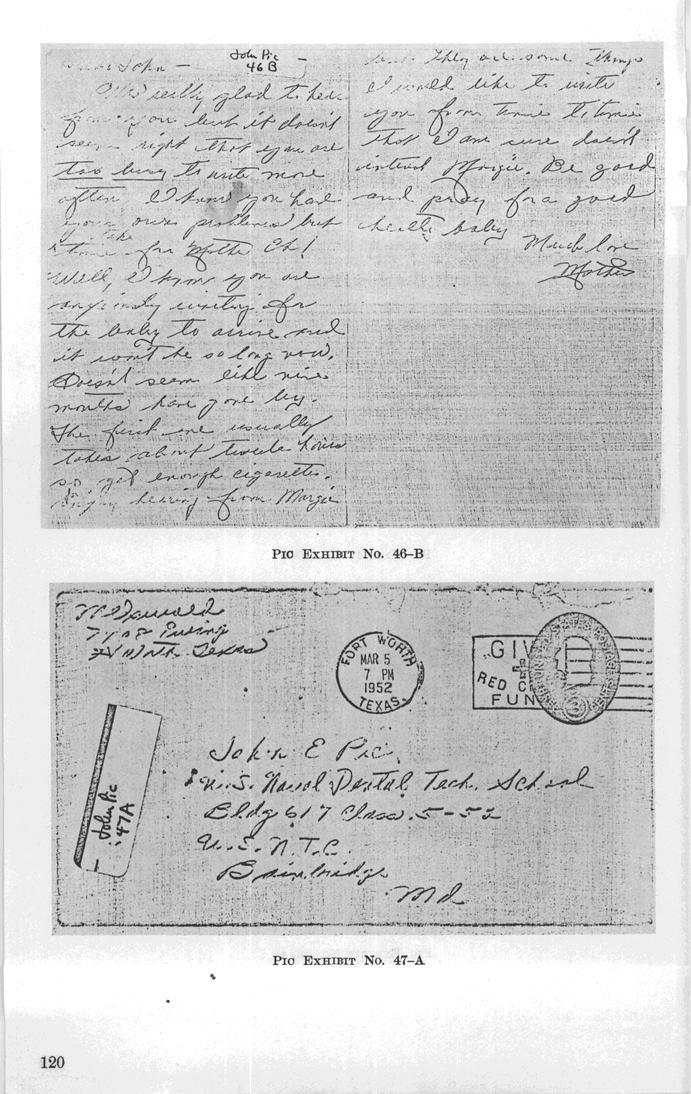 John Pic
46B
John —
really glad to hear
from you but it doesn't
seem right that you are
too busy to write more
often I know you have
your own problems but
take
time for Mother Eh!
Well, I know you are
anxiously waiting for
the baby to arrive and
it won't be so long now.
Doesn't seem like nine
months have gone by.
The first one usually
takes about twelve hours
so get enough cigarettes.
Enjoy hearing from Margie
but they are some things
I would like to write
you from time to time
that I am sure doesn't
interest Margie. Be good
and pray for a good
healthy baby
Much love
Mother
PIC EXHIBIT No. 46–B
M Oswald
Ewing
Ft Worth Texas
FORT WORTH
MAR 5
7 PM
1952
TEXAS
GIV
RED C
FUN
John Pic
47A
John E Pic
U.S. Naval Dental Tech. School
Bldg 617 Class 5-52
U.S.N.T.C.
Bainbridge
Md
PIC EXHIBIT No. 47–A
120